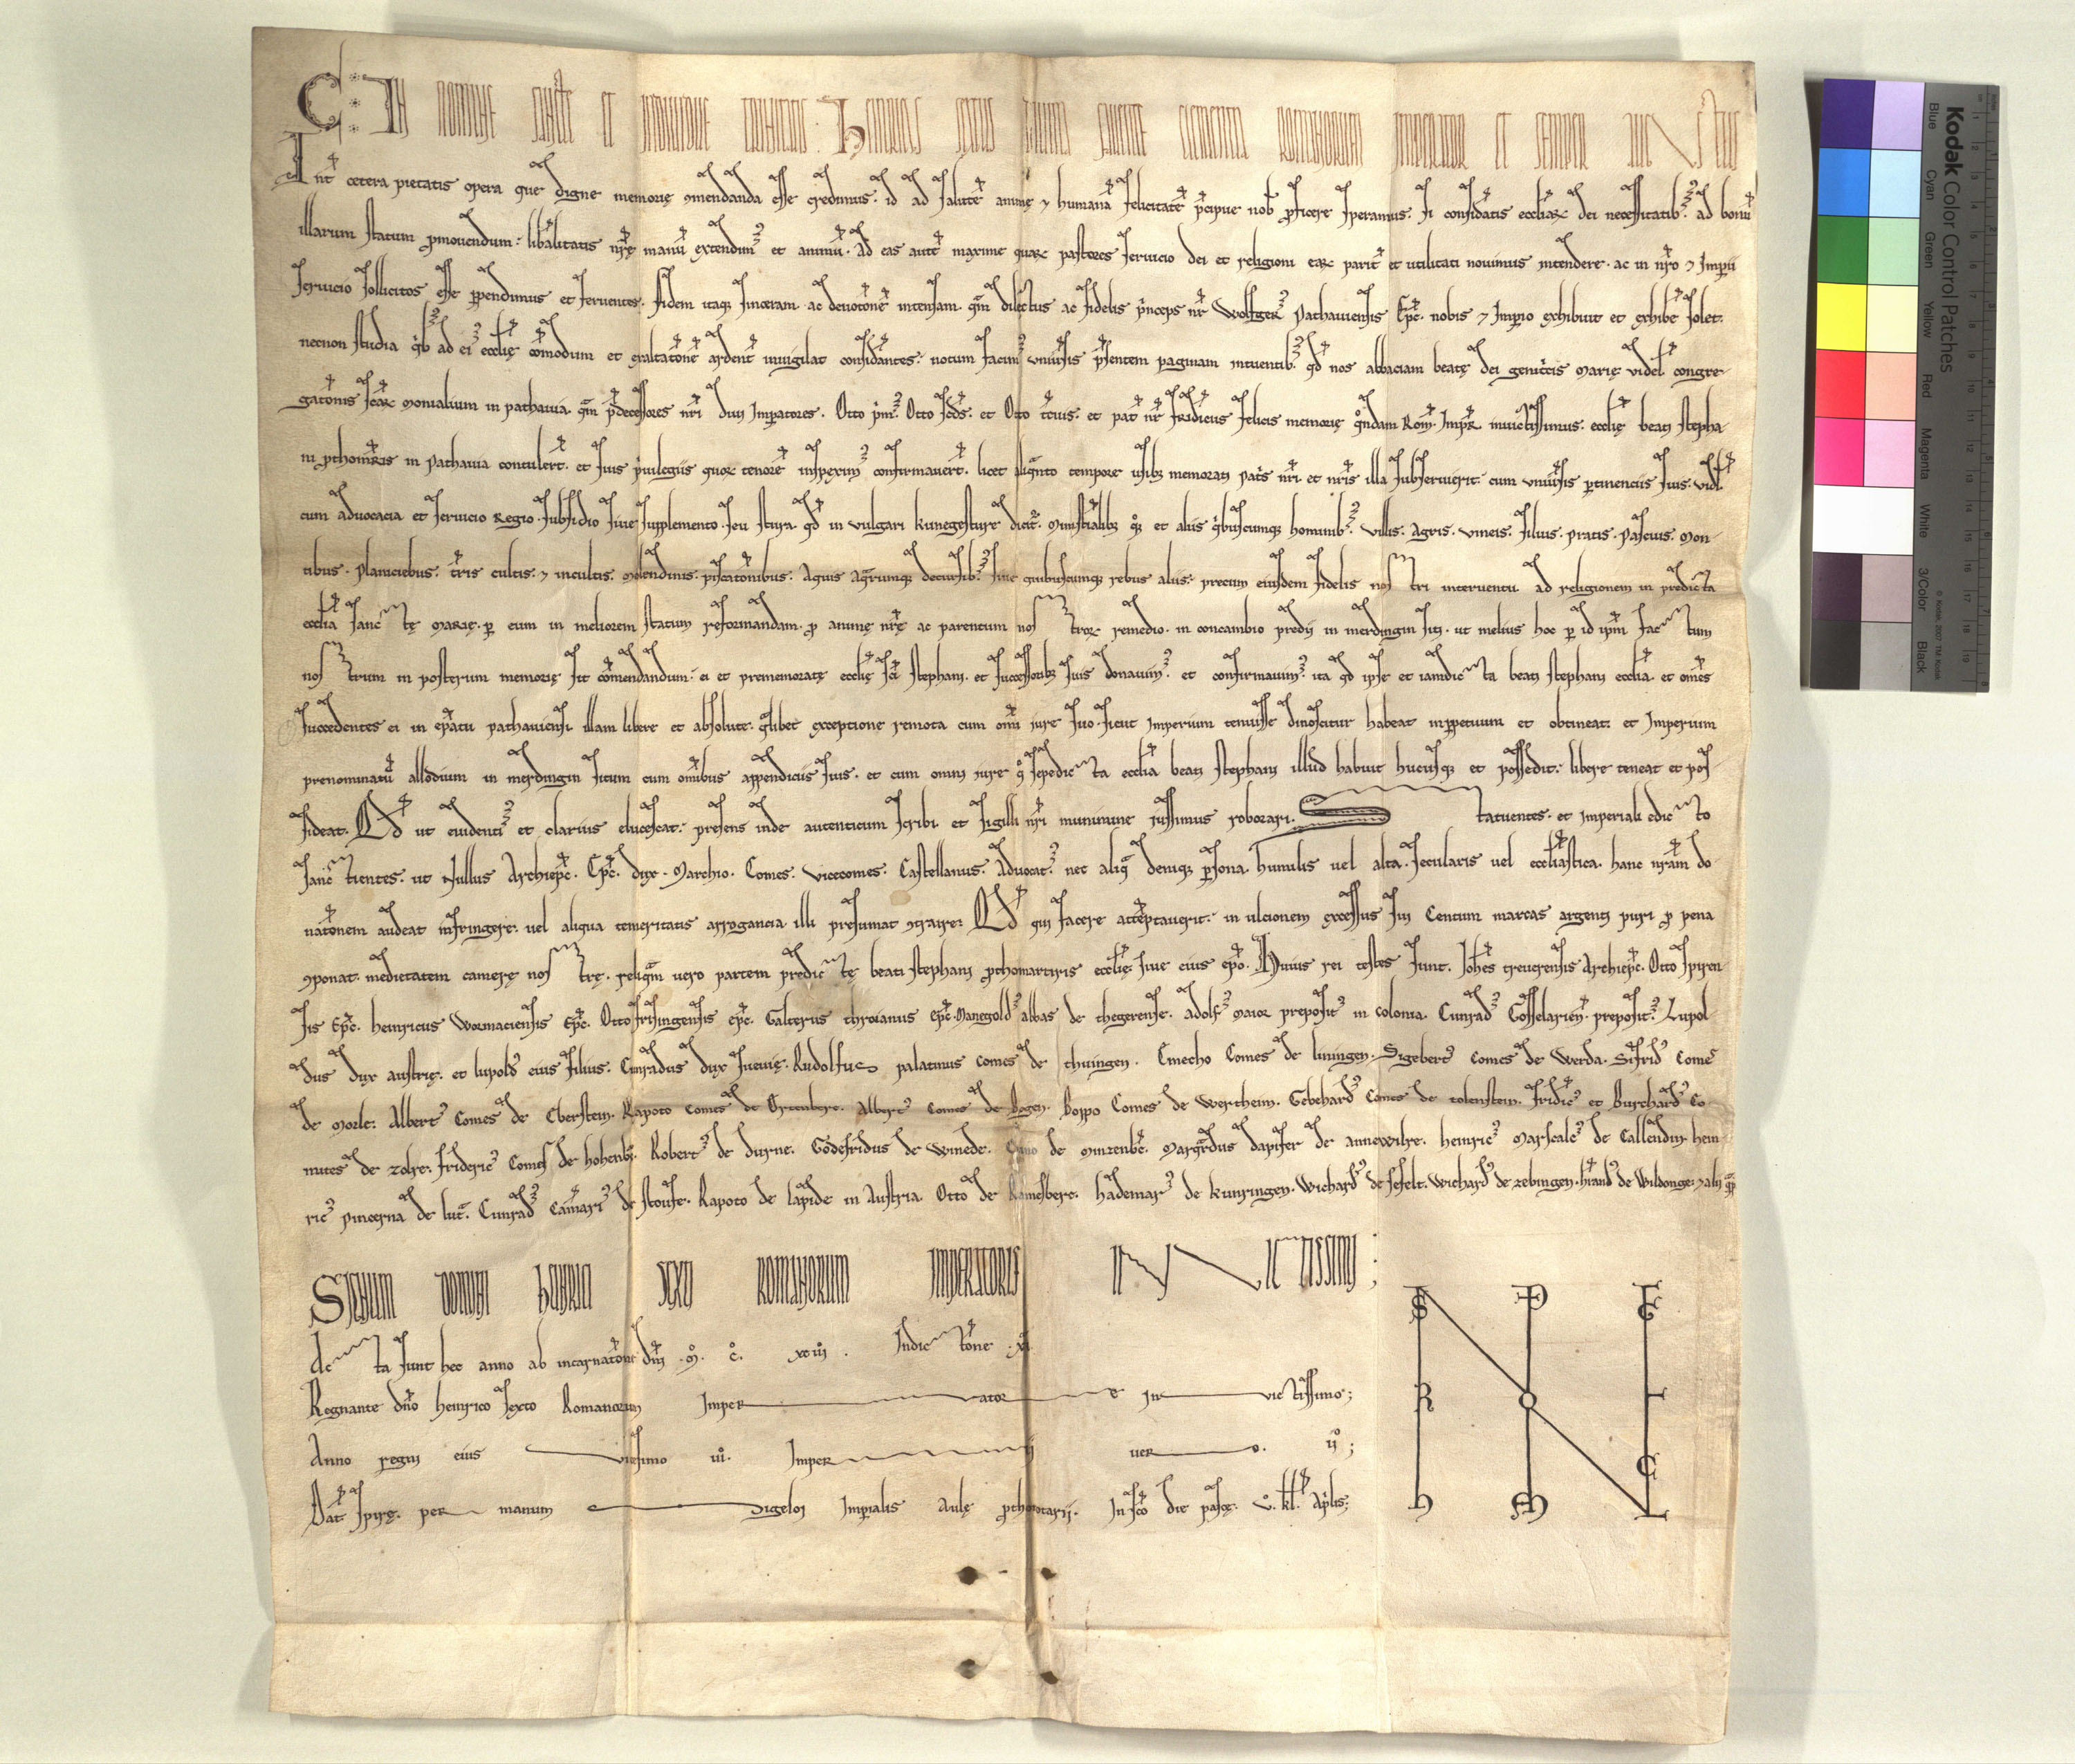 C IN NOMINE SANCTE ET INDIVIDUE TRINITATIS. HEINRICUS SEXTUS DIVINA FAVENTE CLEMENTIA ROMANORUM IMPERATOR ET SEMPER AUGUSTUS
Int cetera pietatis opera que digne memorię ꝯmendanda esse credimus. id ad salutē animę ⁊ humanā felicitatē p̄cipue nob̄ ꝓficere speramus. si consid̾atis eccl̾iaꝝ dei necessitatibꝰ. ad bonū
illarum statum ꝓmouendum. lib̾alitatis nr̄ę manū extendimꝰ et animū. ad eas aut̄ maxime quaꝝ pastores seruicio dei et religioni eaꝝ parit̾ et utilitati nouimus intendere. ac in nr̄o ⁊ Imp̄ii
seruicio sollicitos esse ꝑpendimus et feruentes. fidem itaq; sinceram. ac deuotōnē intensam. qm̄ dilectus ac fidelis p̄nceps nr̄ Wolfger̾ pathauiensis Ep̄c. nobis ⁊ Impio exhibuit et exhibe solet.
necnon studia qͥbꝰ ad eiꝰ eccl̾ię cōmodum et exaltatōnē ardent̾ inuigilat consid̾antes. notum facimꝰ uniu̾sis p̄sentem paginam intuentibꝰ. qd̾ nos abbaciam beatę dei genitͥcis Marię uidel̾ congre
gatōnis scāꝝ monialium in pathauia. qm̄ p̄decessores nr̄i diui Impatores. Otto pͥmꝰ. Otto scd̄s. et Otto t̾cius. et pat̾ nr̄ fridicus felicis memorię qͦndam Rom̄. Imp̄r. inuictissimus. eccl̾ię beati stepha
ni ꝓthomr̄is in pathauia contulert̾. et suis pͥuilegiis quoꝝ tenorē inspeximꝰ confirmauert̾. licet aliqͣnto tempore usibꝫ memorati patͥs nr̄i et nr̄is illa subseruierit. cum uniu̾sis ꝑtinenciis suis. uidl̾
cum aduocacia et seruicio regio. subsidio siue supplemento. seu stiura. qd̾ in uulgari kunegestiure dicit̾. minist̾ialibꝫ qͦꝫ et aliis qͥbuscumqꝫ hominibꝰ. uillis. agris. uineis. siluis. pratis. pascuis. mon
tibus. planiciebus. t̾ris cultis. ⁊ incultis. molendinis. piscatōnibus. aquis aqͣrumqꝫ decursibꝰ. siue quibuscumqꝫ rebus aliis. precum eiusdem fidelis nostri interuentu. ad religionem in predicta
eccl̾ia sancte Marię. ꝑ eum in meliorem statum reformandam. ꝓ animę nr̄ę ac parentum nostroꝝ remedio. in concambio predii in merdingin siti. ut melius hoc ꝑ id ip̄m factum
nostrum in posterum memorię sit cōmendandum. ei et prememoratę eccl̾ię sc̄i stephani. et successoribꝫ suis donauimꝰ. et confirmauimꝰ. ita qd̾ ipse et iamdicta beati stephani eccl̾ia. et om̄es
succedentes ei in ep̄atu pathauiensi illam libere et absolute. qͣlibet exceptione remota cum om̄i iure suo. sicut imperium tenuisse dinoscitur habeat inꝑpetuum et obtineat. et Imperium
prenominatū allodium in merdingin situm cum om̄ibus appendiciis suis. et cum omni iure qͦ sepedicta eccl̾ia beati stephani illud habuit hucusqꝫ et possedit. libere teneat et pos
sideat. Qd̾ ut euidentiꝰ et clarius elucescat. presens inde autenticum scribi. et sigilli nr̄i munimine iussimus roborari. Statuentes. et imperiali edicto
sanctientes. ut Nullus Archiep̄c. Ep̄c. dux. Marchio. Comes. Vicecomes. Castellanus. Aduocatꝰ. nec aliqͣ deniqꝫ ꝑsona. humilis uel alta. secularis uel eccl̾iastica. hanc nr̄am do
natōnem audeat infringere. uel aliqua temeritatis arrogancia illi presumat ꝯtraire. Qd̾ qui facere attēptauerit. in ulcionem excessus sui Centum marcas argenti puri ꝓ pena
ꝯponat. medietatem camerę nostrę. reliqͣm uero partem predictę beati stephani ꝓthomartiris eccl̾ię. siue eius ep̄o. Huius rei testes sunt. Joh̄es treuerensis Archiep̄c. Otto spiren
sis Ep̄c. heinricus Wormaciensis Ep̄c. Otto frisingensis ep̄c. Galterus throianus ep̄c. Manegoldꝰ abbas de thegerense. adolfꝰ maior prepositꝰ in colonia. Cunradꝰ Gosselarien̄. prepositꝰ. Lupol
dus dux austrię. et lupoldꝰ eius filius. Cunradus dux sueuię. Rudolfus palatinus comes de thuingen. Emecho Comes de liningen. Sigebertꝰ comes de Werda. Sifridꝰ Comes
de Morle. Albertꝰ Comes de Eberstein. Rapoto Comes de Ortenberc. Albertꝰ Comes de Bogen. Boppo Comes de Wertheim. Gebehardꝰ Comes de tolenstein. fridicꝰ et Burchardꝰ Co
mites de zolre. fridericꝰ Comes de hohenbͥ. Robertꝰ de durne. Godefridus de Winede. Cuno de Minzenbc̄. Marqͣrdus dapifer de annewilre. heinricꝰ Marscalcꝰ de Callendin. hein
ricꝰ pincerna de lutͣ. Cunradꝰ Cam̄arꝰ de stoufe. Rapoto de lapide in Austria. Otto de Ramesberc. hademarꝰ de kunringen. Wichardꝰ de sefelt. Wichardꝰ de zebingen. h̾randꝰ de Wildonge. ⁊ alii qͣꝑ
SIGNUM DOMINI HEINRICI SEXTI ROMANORUM IMPERATORIS INVICTISSIMI;
Acta sunt hec anno ab incarnatōne dn̄i .Mͦ. Cͦ. xciiii. Indictōne .xi
Regnante dn̄o heinrico sexto Romanorum Imperatore inuictissimo;
Anno regni eius uicesimo iii. Imperii uero. iiͦ;
Dat̾ spirę. per manum Sigeloi Imꝑialis aulę ꝓthonotarii. In sc̄o die pascę. vͦ. kl̾. ap̾lis;
S P E
G
R O
T
C
H M L
Kodak Color Control Patches
Blue Cyan Green Yellow Red Magenta White 3/Color Black
© Kodak, 2007 TM: Kodak